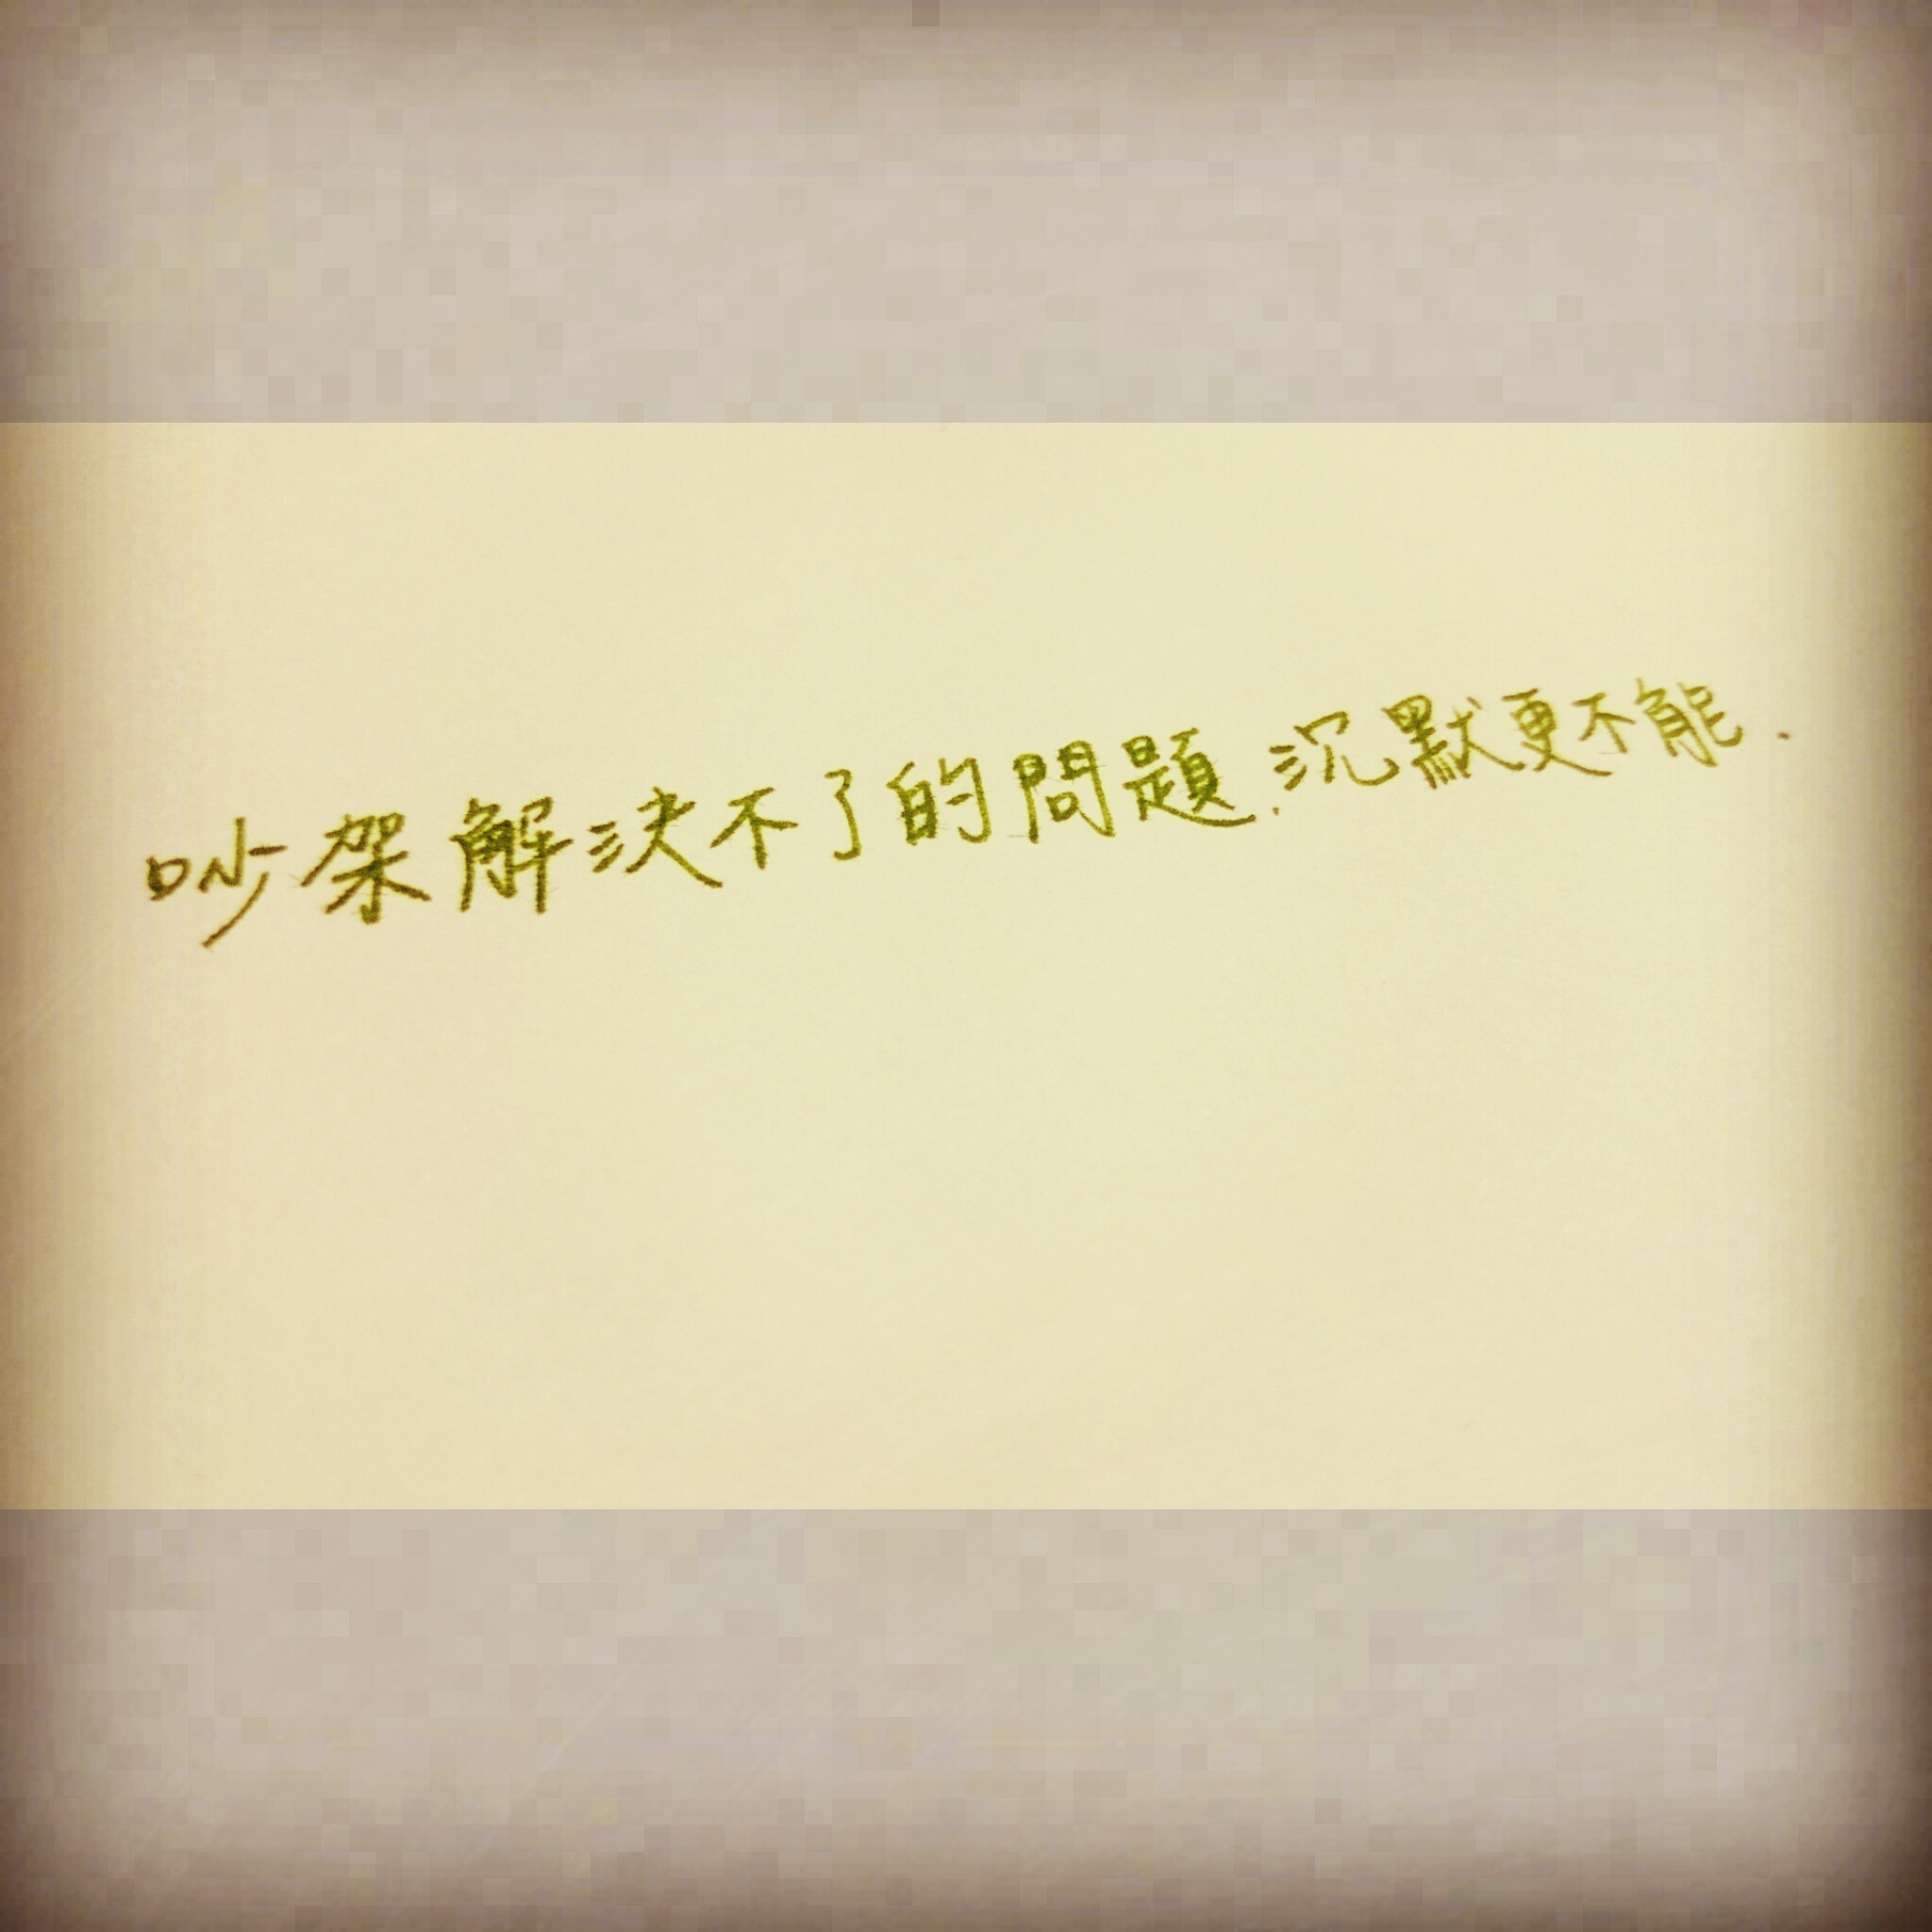 吵架解決不了的問題.沉默更不能.